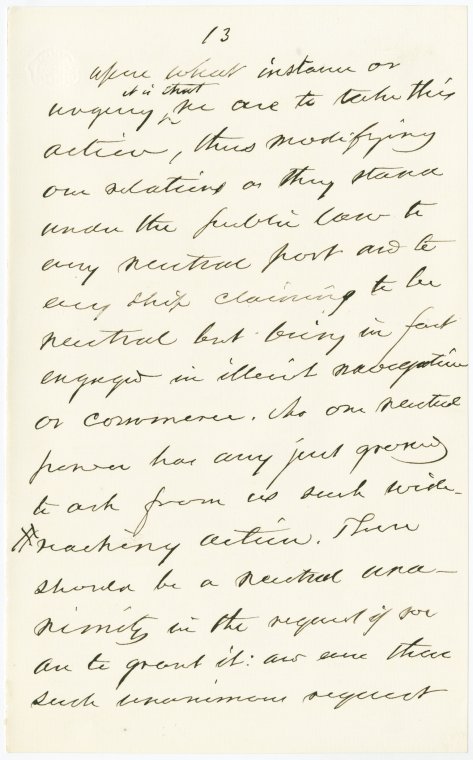 13
upon what instance or
urgency it is that we are to take this
action, thus modifying
our relations as they stand
under the public law to
any neutral port and to
any ship claiming to be
neutral but being in fact
engaged in illicit navigation
or commerce. No one neutral
power has any just ground
to ask from us such wide-
reaching action. There
should be a neutral una-
nimity in the request if we
are to grant it: and even then
such unanimous request